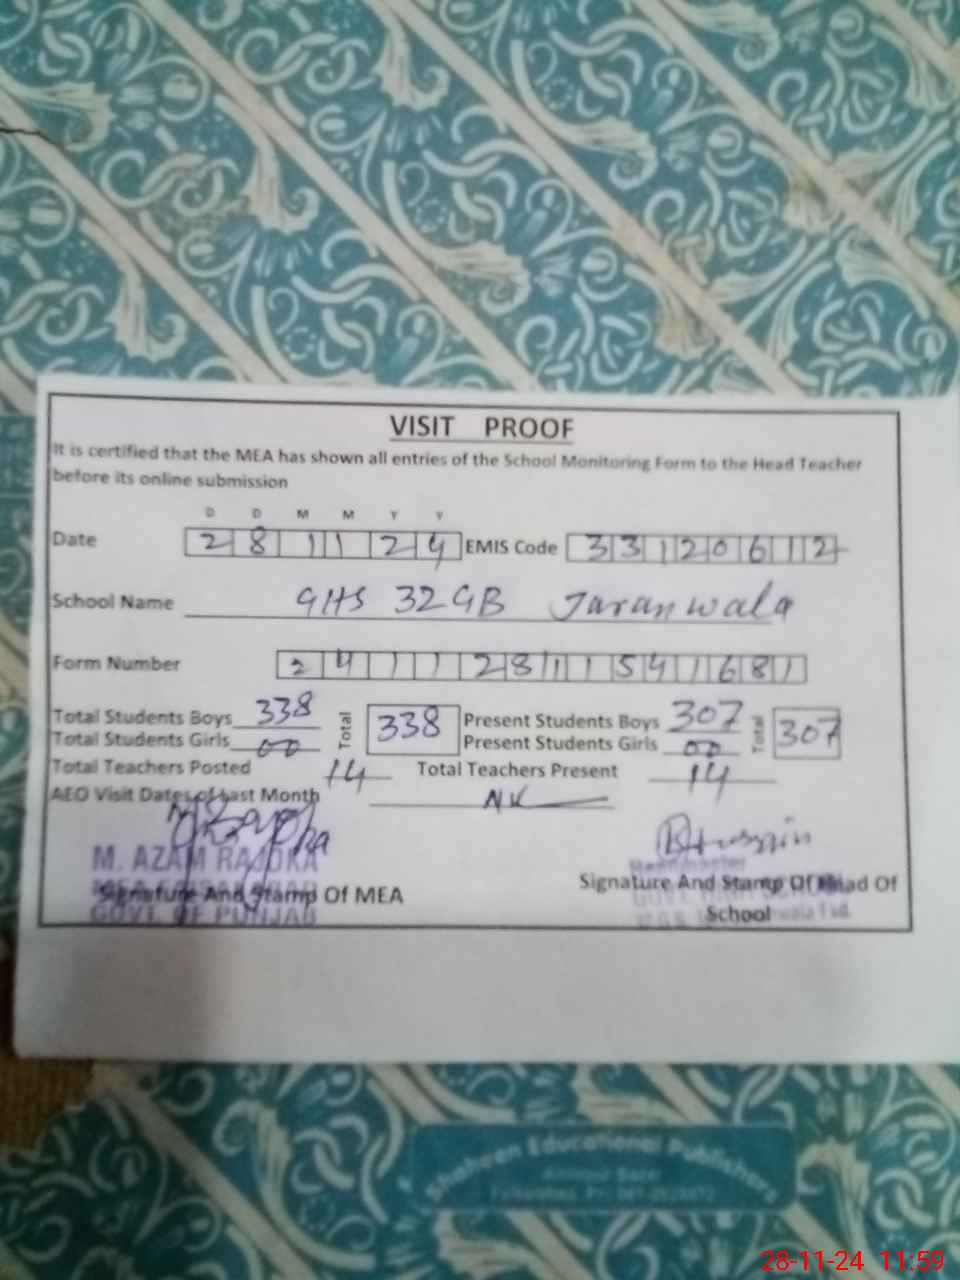 VISIT PROOF
It is certified that the MEA has shown all entries of the School Monitoring Form to the Head Teacher
before its online submission
D D M M Y Y
Date 2 8 1 1 2 4 EMIS Code 3 3 1 2 0 6 1 2
School Name GHS 32 GB Jaranwala
Form Number 2 4 1 1 2 8 1 1 5 4 1 6 8 1
Total Students Boys 338 Total 338 Present Students Boys 307 Total 307
Total Students Girls 00 Present Students Girls 00
Total Teachers Posted 14 Total Teachers Present 14
AEO Visit Dates of Last Month
M. AZAM RAJOKA
Signature And Stamp Of MEA
GOVT. OF PUNJAB
Headmaster
Signature And Stamp Of Head Of
School
Shaheen Educational Publishers
28-11-24 11:59